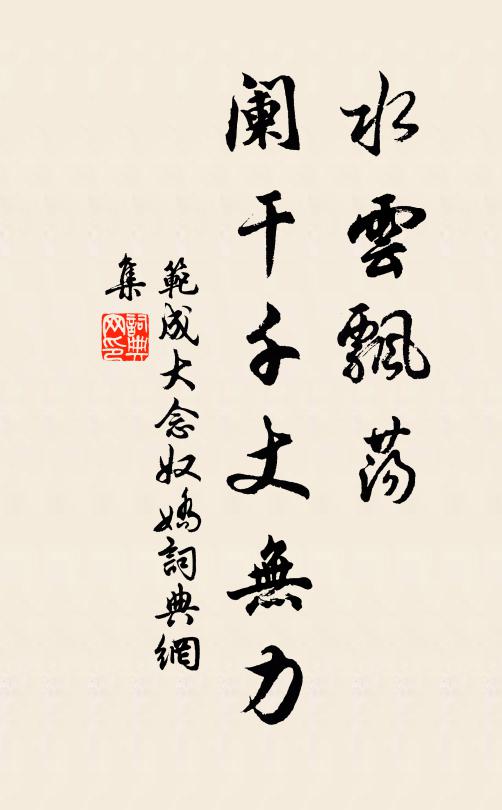 水雲飄蕩
阑干千丈無力
範成大念奴嬌詞典網
集
詞典
网印